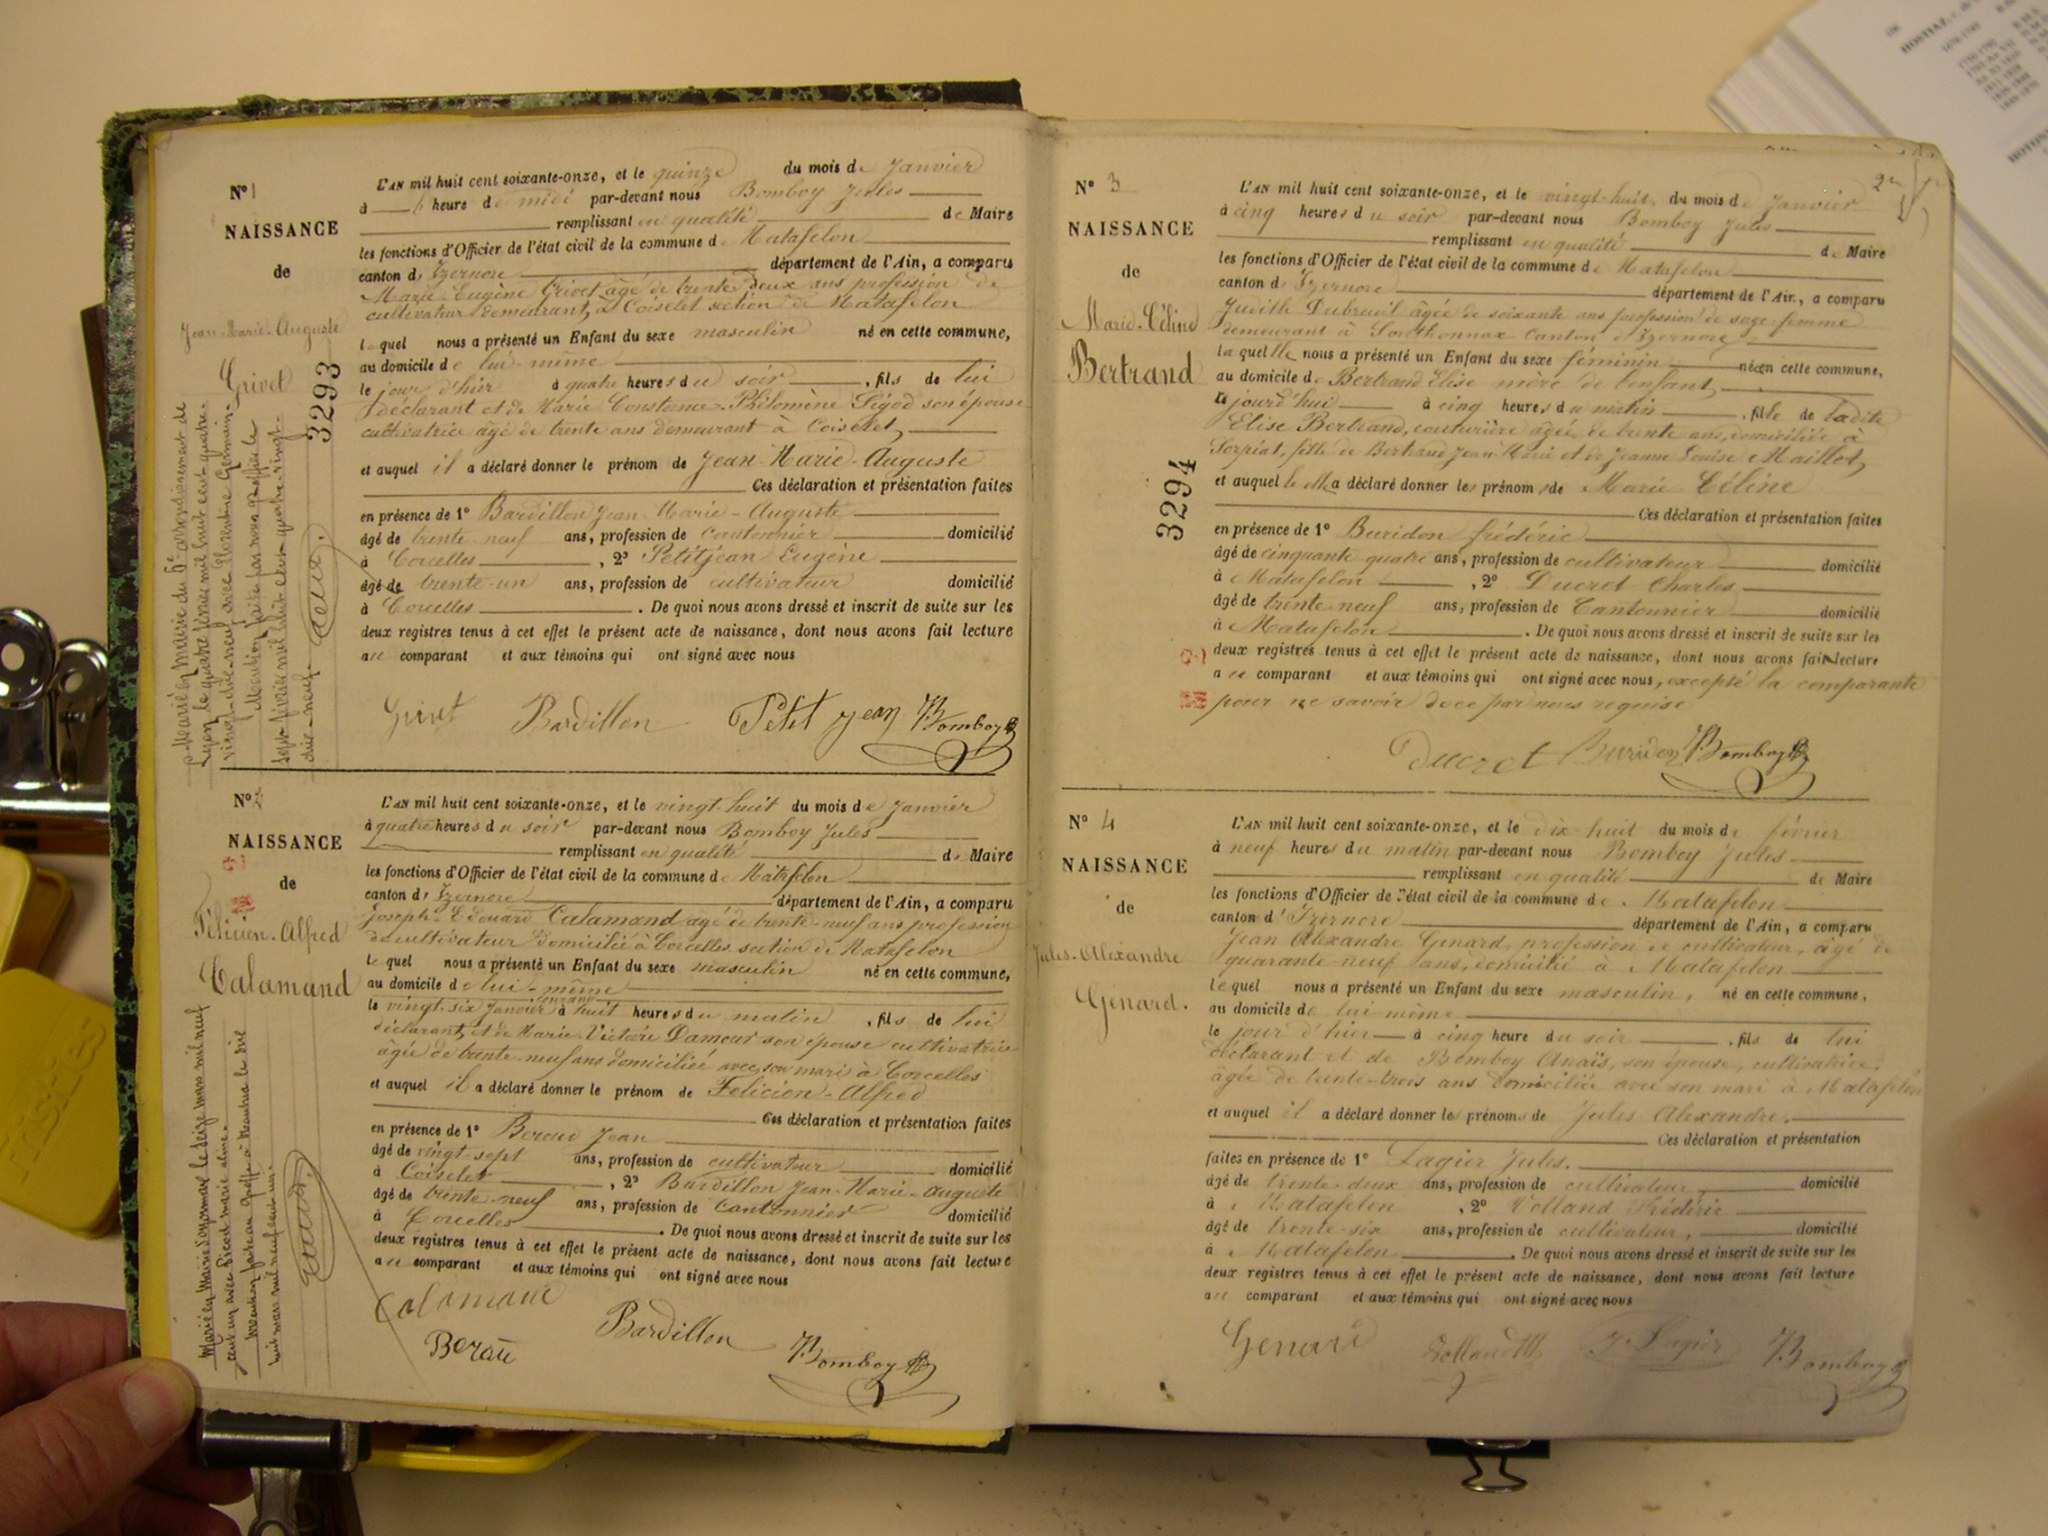 N° 1
NAISSANCE
de
Jean-Marie-Auguste
Grivet
3293
L'AN mil huit cent soixante-onze, et le quinze du mois de Janvier
à heure de midi par-devant nous Bomboy Jules
remplissant en qualité de Maire
les fonctions d'Officier de l'état civil de la commune de Matafelon
canton d'Izernore département de l'Ain, a comparu
Marie-Eugène Grivet âgé de trente deux ans profession de
cultivateur demeurant à Coiselet section de Matafelon
lequel nous a présenté un Enfant du sexe masculin né en cette commune,
au domicile de lui-même
le jour d'hier à quatre heures du soir, fils de lui
déclarant et de Marie Constance-Philomène Ségod son épouse
cultivatrice âgé de trente ans demeurant à Coiselet,
et auquel il a déclaré donner le prénom de Jean-Marie-Auguste
Ces déclaration et présentation faites
en présence de 1° Bardillon Jean-Marie-Auguste
âgé de trente neuf ans, profession de cantonnier domicilié
à Corcelles, 2° Petitjean Eugène
âgé de trente-un ans, profession de cultivateur domicilié
à Corcelles. De quoi nous avons dressé et inscrit de suite sur les
deux registres tenus à cet effet le présent acte de naissance, dont nous avons fait lecture
au comparant et aux témoins qui ont signé avec nous
Grivet Bardillon Petit jean Bomboy
Marié en mairie du 6e arrondissement de
Lyon le quatre février mil huit cent quatre-
vingt-dix-neuf avec Florentine Germain.
Mention faite par nous greffier le
sept février mil huit cent quatre-vingt-
dix-neuf.
N° 2
NAISSANCE
de
Félicien-Alfred
Calamand
L'AN mil huit cent soixante-onze, et le vingt-huit du mois de Janvier
à quatre heures du soir par-devant nous Bomboy Jules
remplissant en qualité de Maire
les fonctions d'Officier de l'état civil de la commune de Matafelon
canton d'Izernore département de l'Ain, a comparu
Joseph-Edouard Calamand âgé de trente-neuf ans profession
de cultivateur domicilié à Corcelles section de Matafelon
lequel nous a présenté un Enfant du sexe masculin né en cette commune,
au domicile de lui-même
le vingt-six Janvier à huit heures du matin, fils de lui
déclarant, et de Marie-Victoire Damour son épouse cultivatrice
âgée de trente-neuf ans domiciliée avec son mari à Corcelles
et auquel il a déclaré donner le prénom de Félicien-Alfred
Ces déclaration et présentation faites
en présence de 1° Beraud Jean
âgé de vingt-sept ans, profession de cultivateur domicilié
à Coiselet, 2° Bardillon Jean-Marie-Auguste
âgé de trente-neuf ans, profession de cantonnier domicilié
à Corcelles. De quoi nous avons dressé et inscrit de suite sur les
deux registres tenus à cet effet le présent acte de naissance, dont nous avons fait lecture
au comparant et aux témoins qui ont signé avec nous
Calamand Bardillon
Beraud Bomboy
Marié en Mairie d'Oyonnax le seize mars mil neuf
cent un avec Picod marie aline.
Mention par au greffe à Nantua le dix
huit mars mil neuf cent un.
N° 3
NAISSANCE
de
Marie-Céline
Bertrand
3294
L'AN mil huit cent soixante-onze, et le vingt-huit du mois de Janvier
à cinq heures du soir par-devant nous Bomboy Jules
remplissant en qualité de Maire
les fonctions d'Officier de l'état civil de la commune de Matafelon
canton d'Izernore département de l'Ain, a comparu
Judith Dubreuil âgée de soixante ans profession de sage-femme
demeurant à Sonthonnax canton d'Izernore
laquelle nous a présenté un Enfant du sexe féminin née en cette commune,
au domicile de Bertrand Elise mère de l'enfant,
aujourd'hui à cinq heures du matin, fille de ladite
Elise Bertrand, couturière âgée de trente ans, domiciliée à
Sorpiat, fille de Bertrand Jean-Marie et de Jeanne Louise Maillet,
et auquel elle a déclaré donner les prénoms de Marie Céline
Ces déclaration et présentation faites
en présence de 1° Buridon frédéric
âgé de cinquante quatre ans, profession de cultivateur domicilié
à Matafelon, 2° Ducret Charles
âgé de trente-neuf ans, profession de Cantonnier domicilié
à Matafelon. De quoi nous avons dressé et inscrit de suite sur les
deux registres tenus à cet effet le présent acte de naissance, dont nous avons fait lecture
au comparant et aux témoins qui ont signé avec nous, excepté la comparante
pour ne savoir de ce par nous requise
Ducret Buridon Bomboy
N° 4
NAISSANCE
de
Jules-Alexandre
Génard.
L'AN mil huit cent soixante-onze, et le dix-huit du mois de février
à neuf heures du matin par-devant nous Bomboy Jules
remplissant en qualité de Maire
les fonctions d'Officier de l'état civil de la commune de Matafelon
canton d'Izernore département de l'Ain, a comparu
Jean Alexandre Génard, profession de cultivateur, âgé de
quarante-neuf ans, domicilié à Matafelon
lequel nous a présenté un Enfant du sexe masculin, né en cette commune,
au domicile de lui même
le jour d'hier à cinq heure du soir, fils de lui
déclarant et de Bomboy Anaïs, son épouse, cultivatrice,
âgée de trente-trois ans domiciliée avec son mari à Matafelon
et auquel il a déclaré donner les prénoms de Jules Alexandre.
Ces déclaration et présentation
faites en présence de 1° Lagier Jules.
âgé de trente-deux ans, profession de cultivateur domicilié
à Matafelon, 2° Volland Frédéric
âgé de trente-six ans, profession de cultivateur, domicilié
à Matafelon. De quoi nous avons dressé et inscrit de suite sur les
deux registres tenus à cet effet le présent acte de naissance, dont nous avons fait lecture
au comparant et aux témoins qui ont signé avec nous
Genard Volland J. Lagier Bomboy